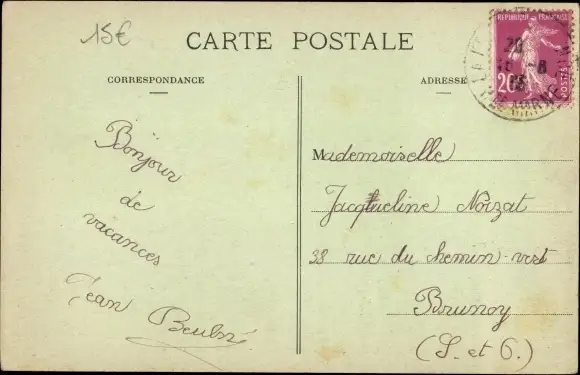 15€
CARTE POSTALE
CORRESPONDANCE
ADRESSE
REPUBLIQUE FRANÇAISE
20c
POSTES
Bonjour
de
vacances
Jean
Mademoiselle
Jacqueline Noizat
38 rue du chemin-vert
Brunoy
(S. et O.)